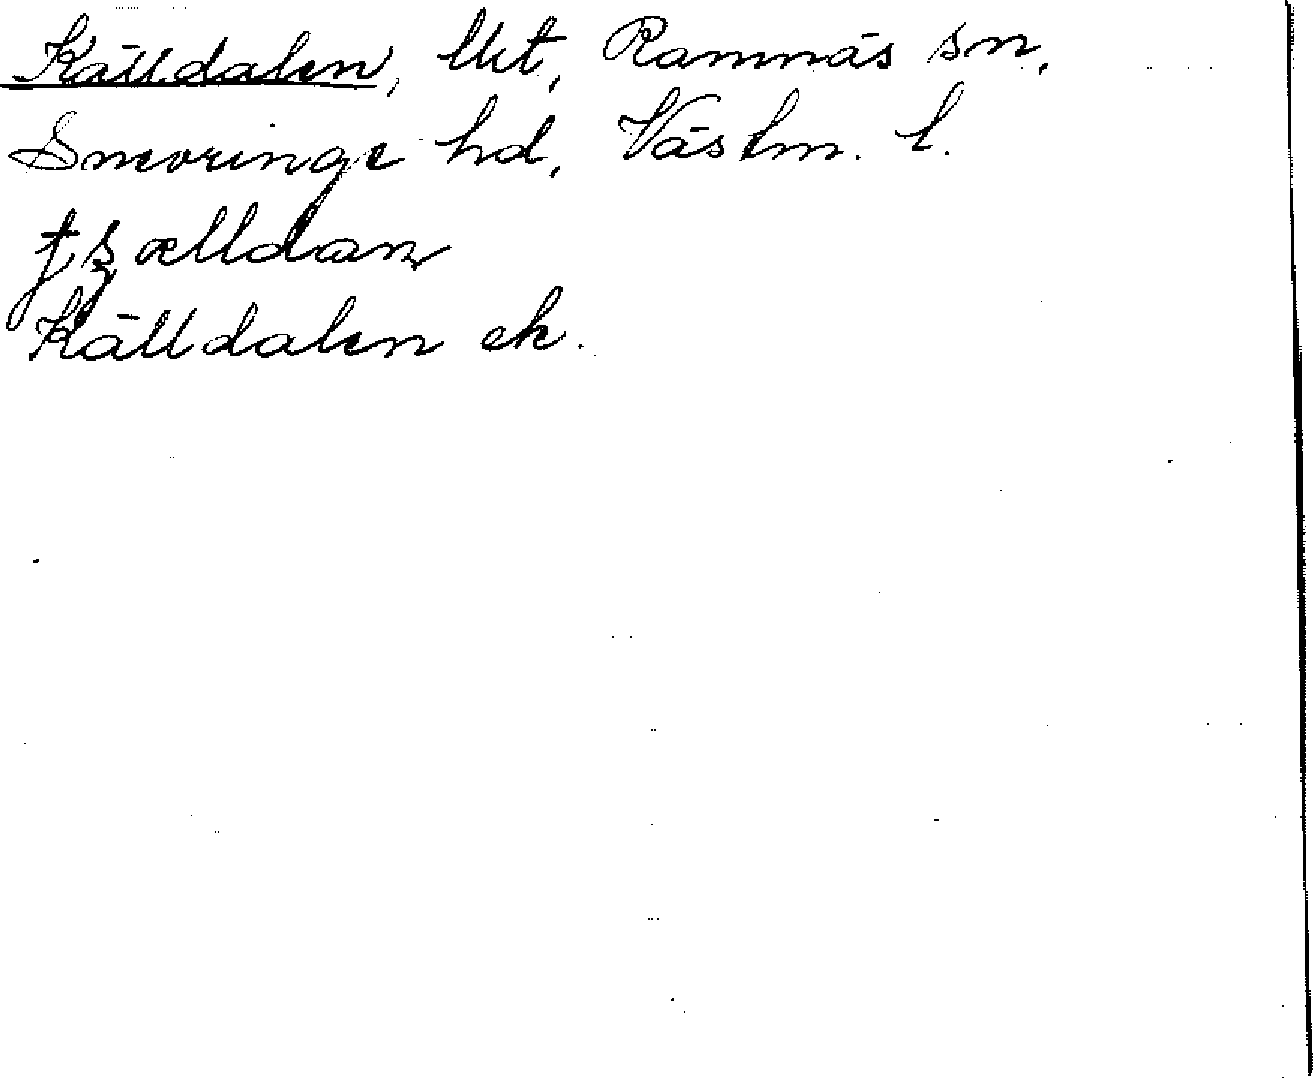 Källdalen, lht, Ramnäs sn,
Snevringe hd, Västm. l.
Källdalen ek.